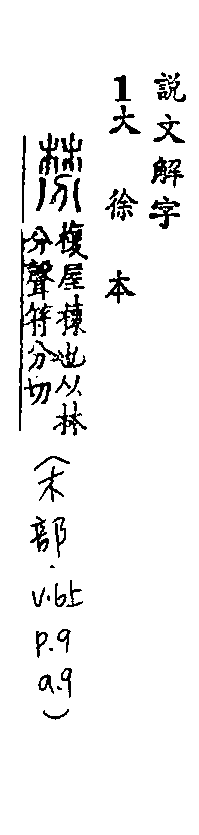 說文解字
1大徐本
棼 複屋棟也从林
分聲符分切
(木部.v.6上
p.9
a.9)